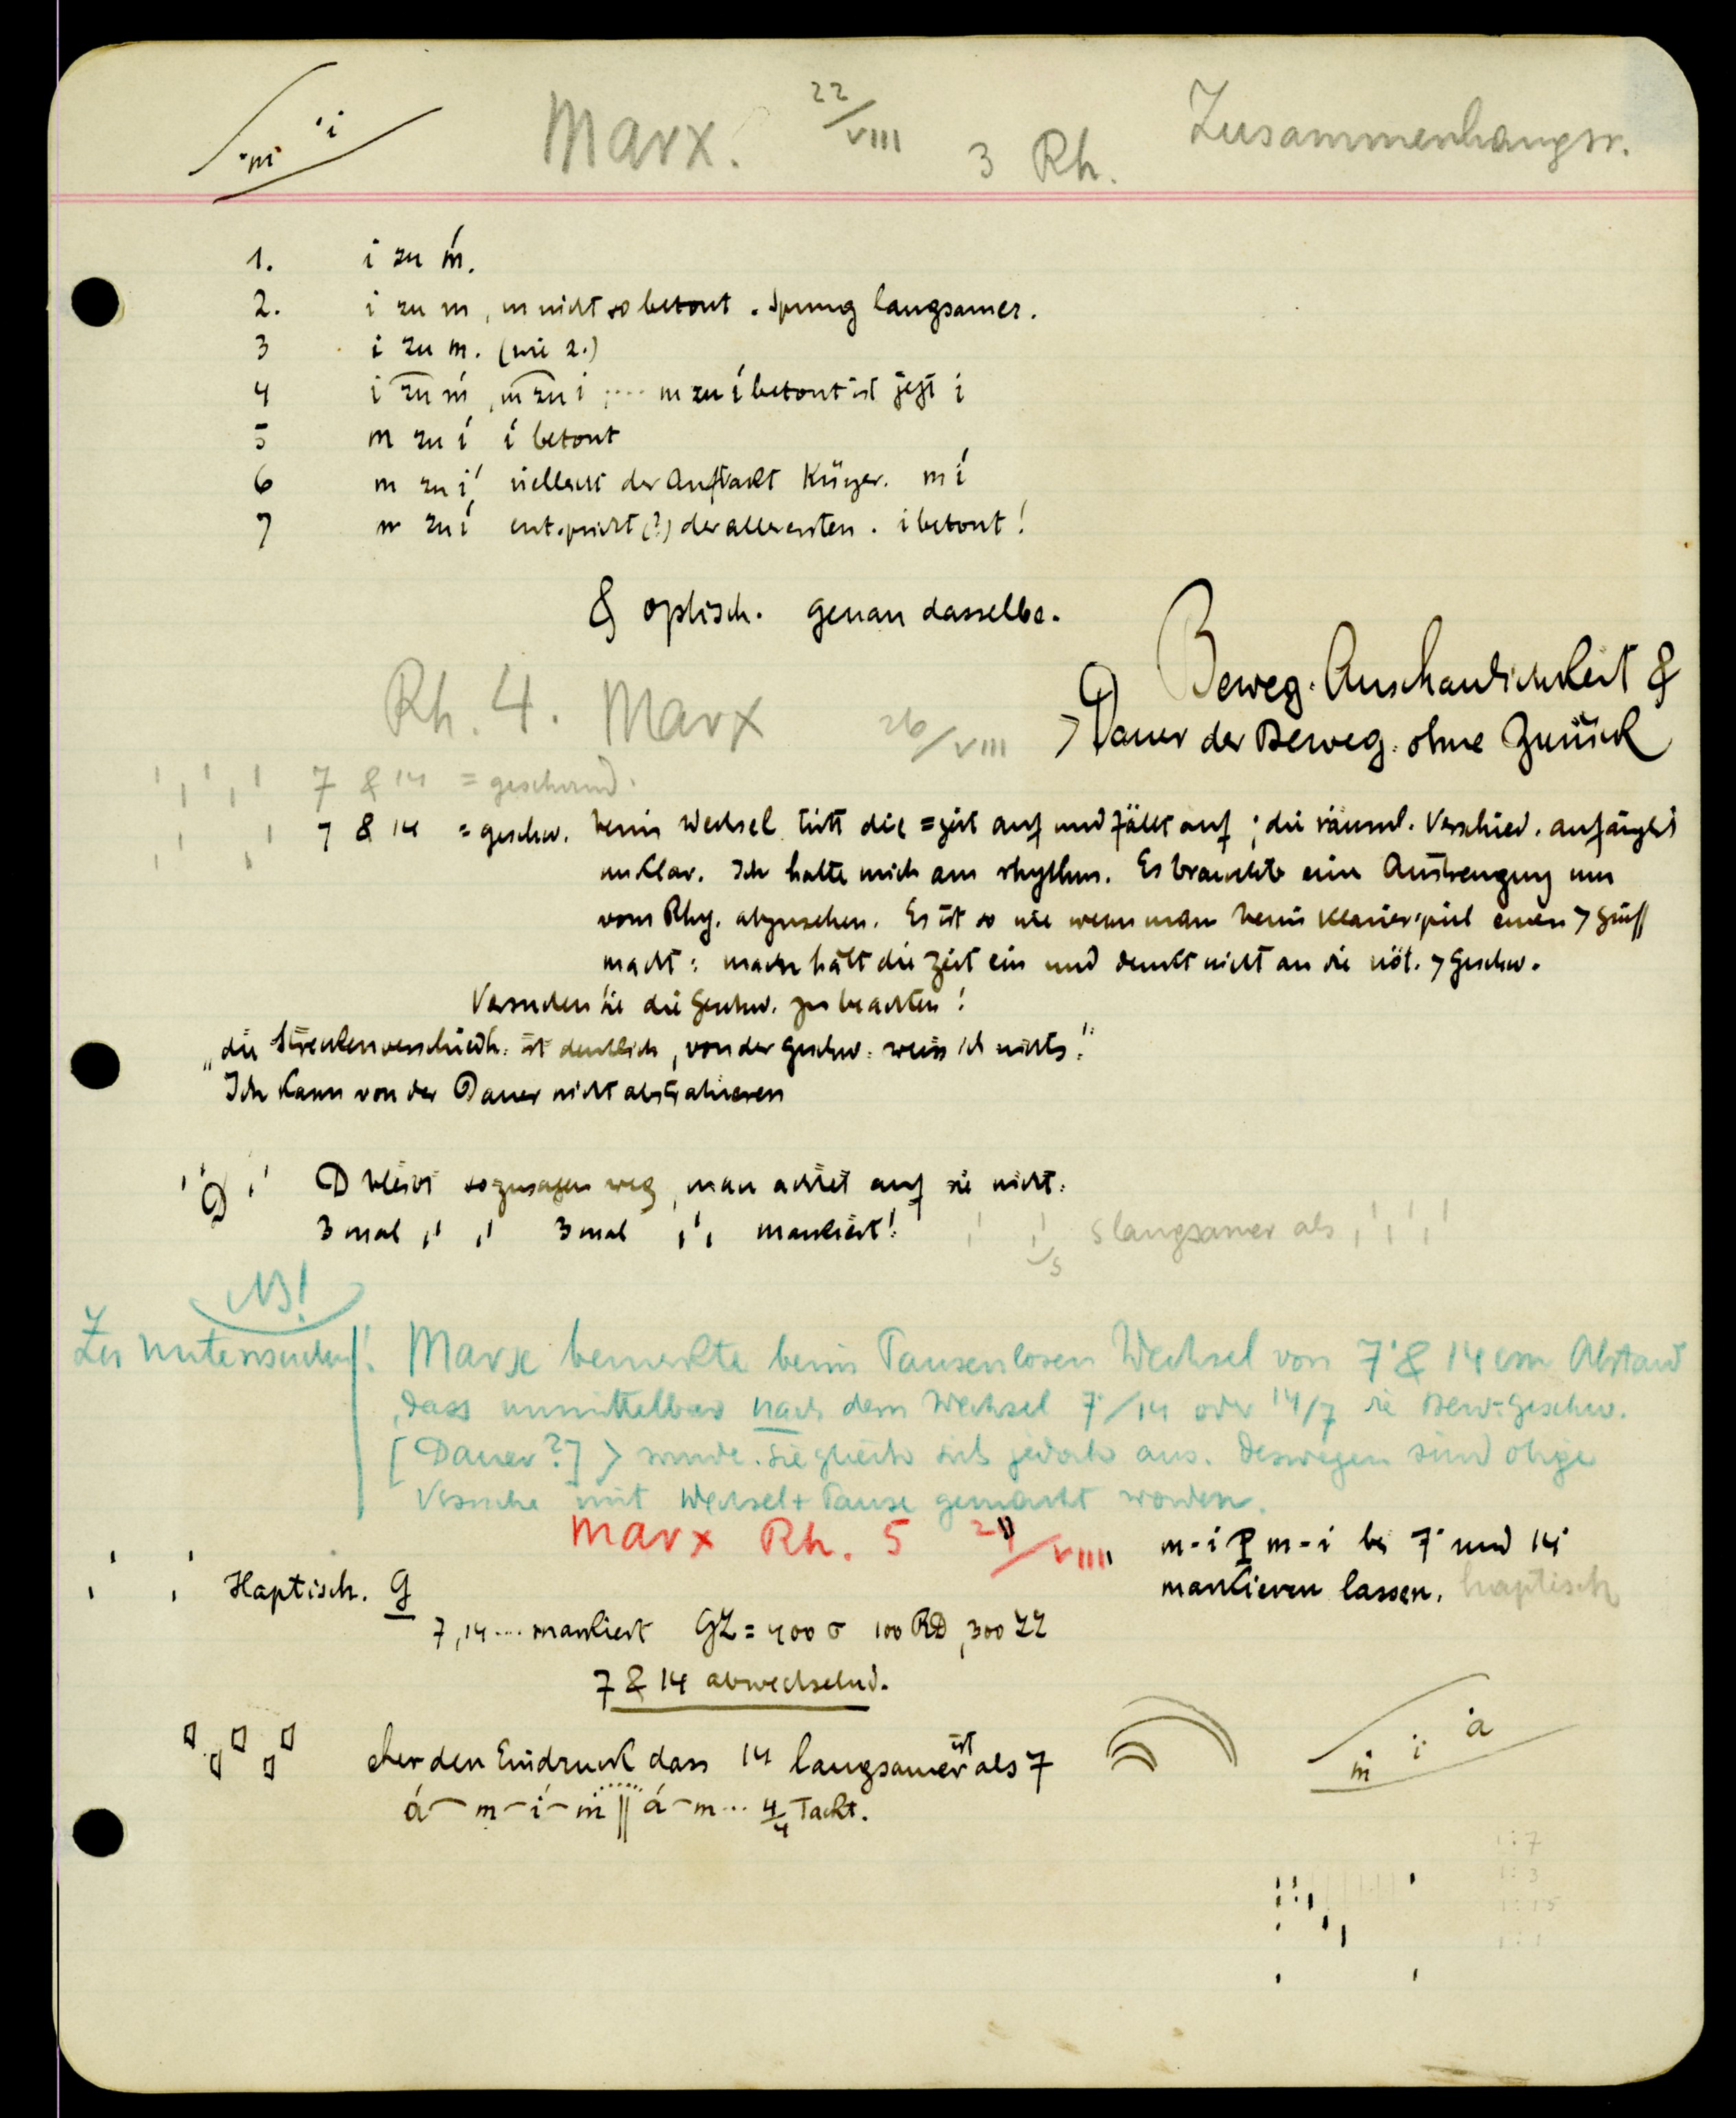 m i Marx. 22/VIII 3 Rh. Zusammenhangsr.
1. i zu ḿ.
2. i zu m, m nicht so betont. Sprung langsamer.
3 i zu m. (wie 2.)
4 i zu ḿ, m zu i, .... m zu í betont ist jetzt i
5 m zu í í betont
6 m zu í, vielleicht der Auftackt kürzer. m í
7 m zu í entspricht (?) der allerersten. i betont!
& optisch. genau dasselbe.
Beweg. Anschaulichkeit &
Rh. 4. Marx 26/VIII > Dauer der Beweg. ohne Zurück
7 & 14 = geschwind.
7 & 14 = geschw. beim Wechsel tritt die = zeit auf und fällt auf; die räuml. Verschied. anfänglich
unklar. Ich halte mich am rhythm. Es brauchte eine Anstrengung um
vom Rhy. abzusehen. Es ist so wie wenn man beim Klavierspiel einen > Griff
macht: man hält die Zeit ein und denkt nicht an die nöt. > Geschw.
Versuchen Sie die Geschw. zu beachten!
„die Streckenverschiedh. ist deutlich, von der Geschw. weiss ich nichts."
Ich kann von der Dauer nicht abstrahieren
D bleibt sozusagen weg, man achtet auf sie nicht.
3 mal 3 mal markiert! s langsamer als
s
NB!
Zu untersuchen! Marx bemerkte beim Pausenlosen Wechsel von 7 & 14 cm Abstand
dass unmittelbar nach dem Wechsel 7/14 oder 14/7 die Bew. Geschw.
[Dauer?] > wurde. Sie gleicht sich jedoch aus. Deswegen sind obige
Versuche mit Wechsel + Pause gemacht worden.
Marx Rh. 5 /VIII m - i P m - i bei 7 und 14
Haptisch. G markieren lassen. haptisch
7, 14 .... markiert GZ = 400 σ 100 RD, 300 ZZ
7 & 14 abwechselnd.
eher den Eindruck dass 14 langsamer ist als 7 m i a
á - m - í - m || á - m ... 4/4 Tackt.
1:7
1:3
1:15
1:1